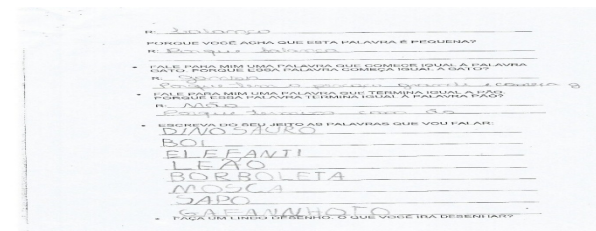 R: balanço
PORQUE VOCÊ ACHA QUE ESTA PALAVRA É PEQUENA?
R: Porque balança
FALE PARA MIM UMA PALAVRA QUE COMECE IGUAL A PALAVRA
GATO. PORQUE ESSA PALAVRA COMEÇA IGUAL A GATO?
R:
Porque tem o
FALE PARA MIM UMA PALAVRA QUE TERMINA IGUAL A PÃO.
PORQUE ESSA PALAVRA TERMINA IGUAL À PALAVRA PÃO?
R: Mão
Porque termina com ão
ESCREVA DO SEU JEITO AS PALAVRAS QUE VOU FALAR:
DINOSAURO
BOL
ELEFANTI
LEÃO
BORBOLETA
MOSCA
SAPO
GAFANNHOTO
FAÇA UM LINDO DESENHO. O QUE VOCÊ IRÁ DESENHAR?